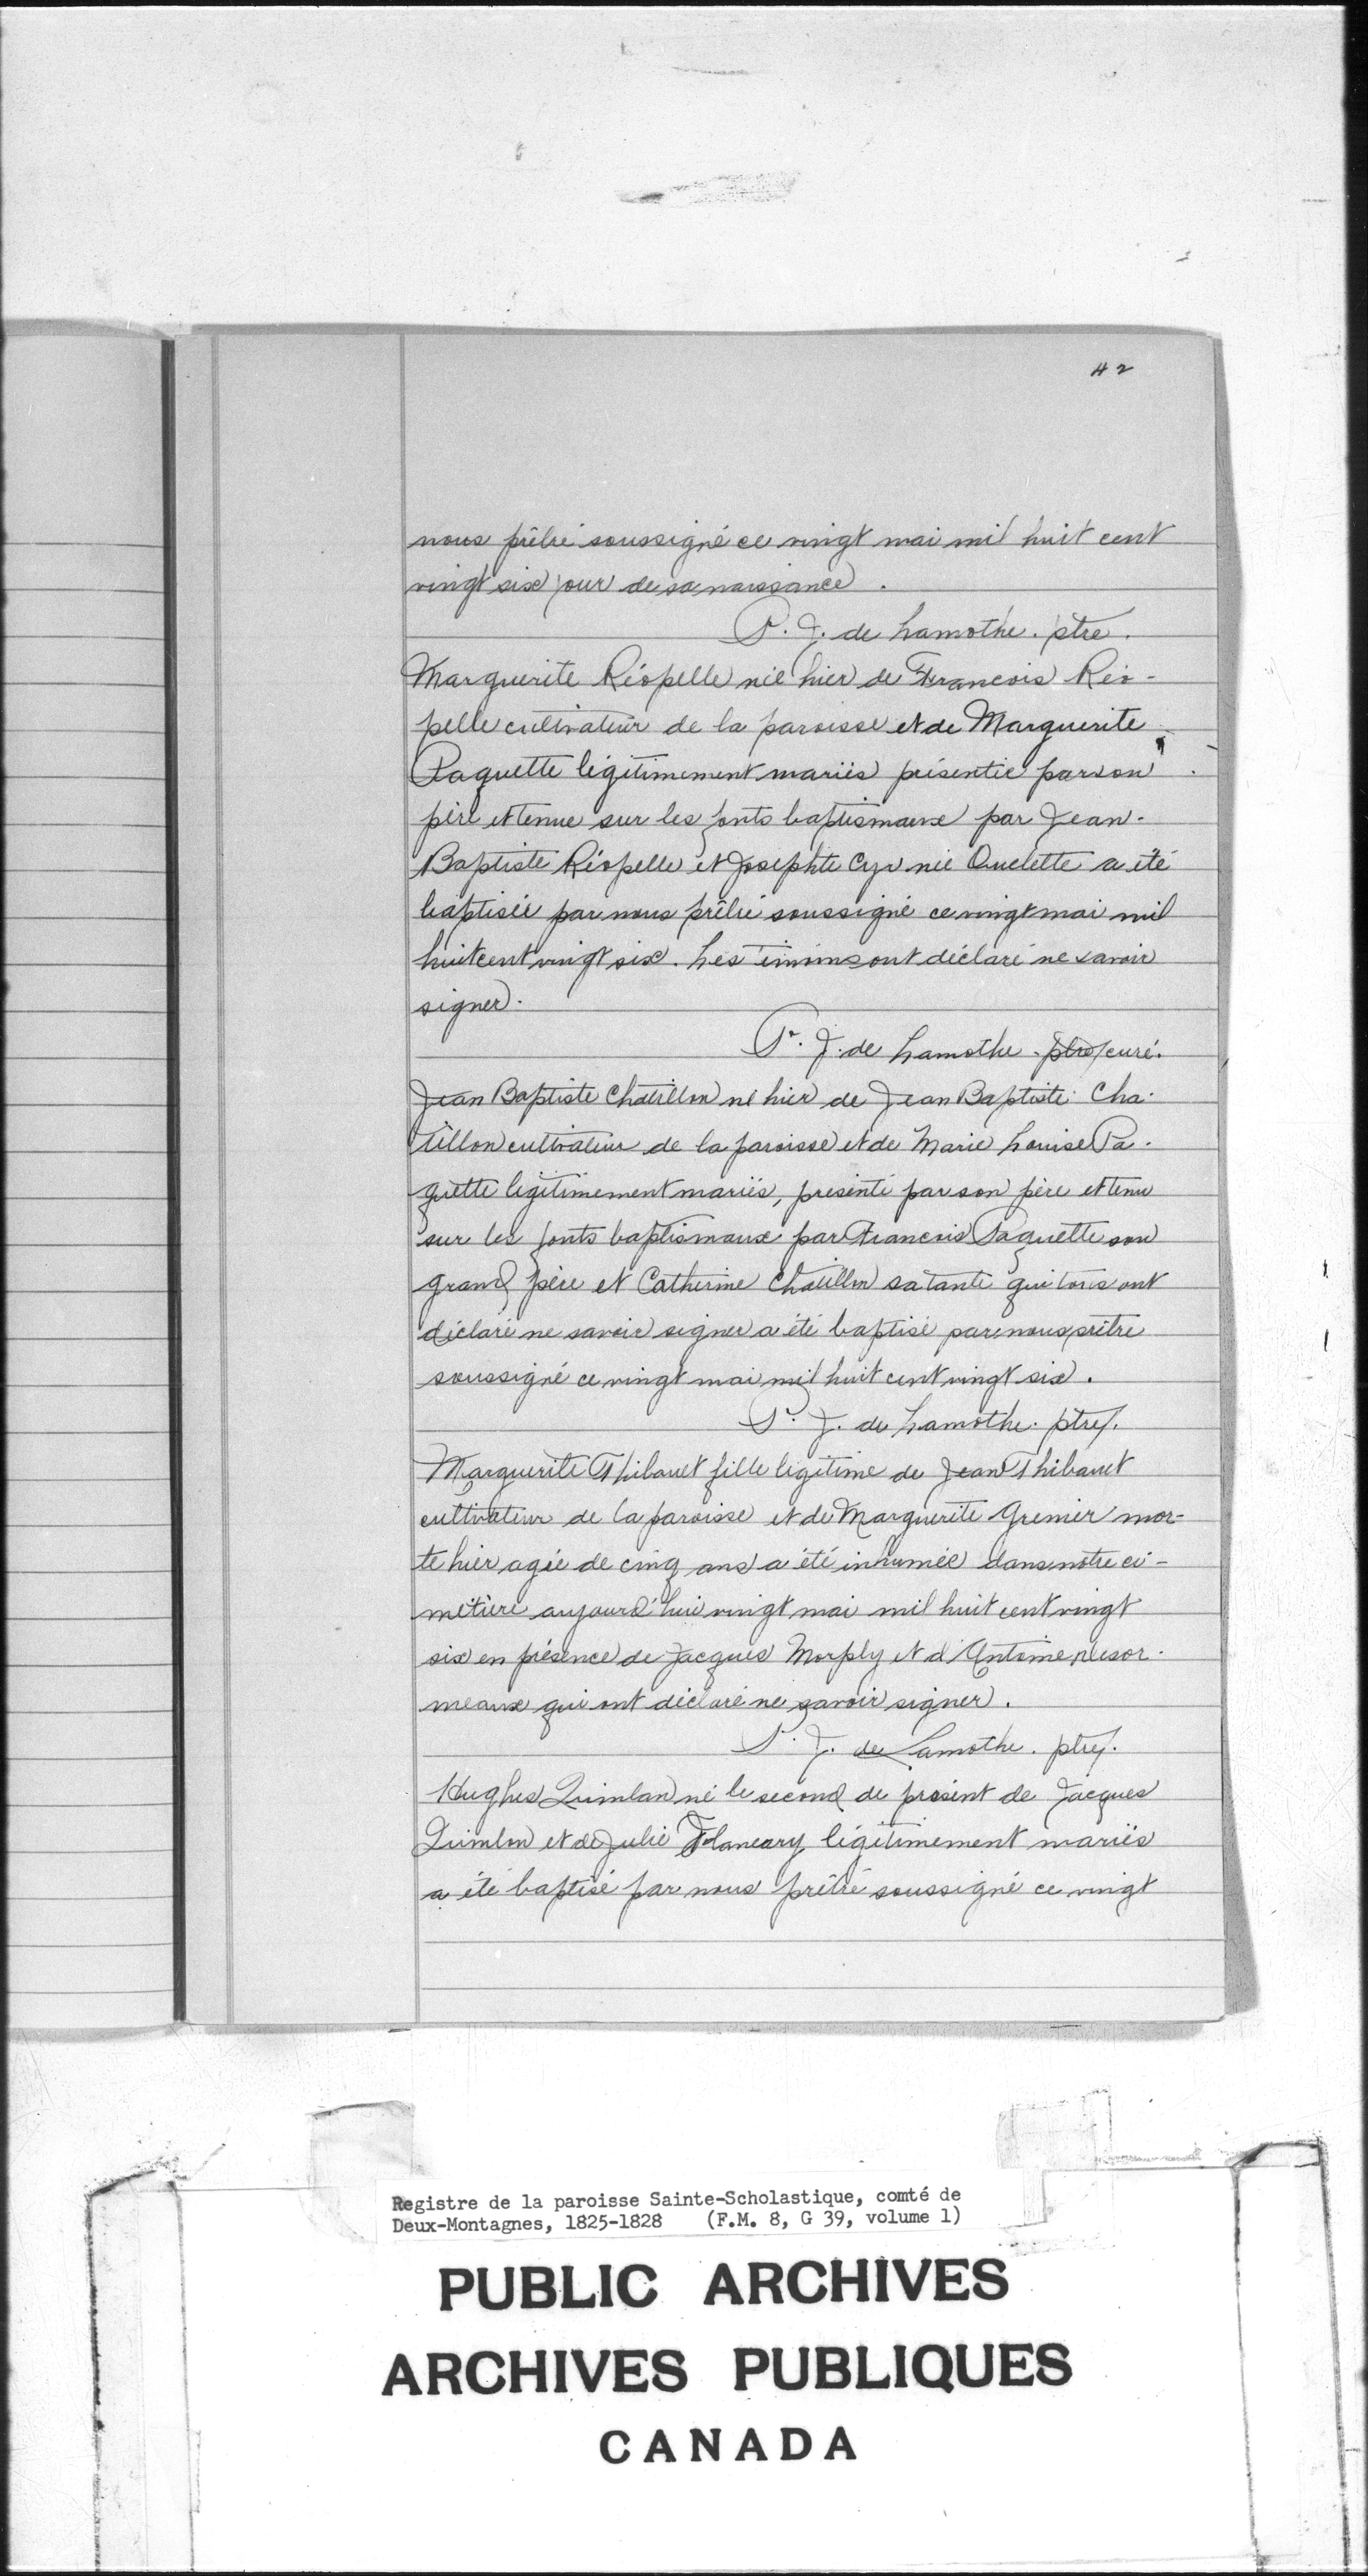 42
nous prêtre soussigné ce vingt mai mil huit cent
vingt six jour de sa naissance.
P. J. de Lamothe. ptre.
Marguerite Réopelle née hier de Francois Réo-
pelle cultivateur de la paroisse et de Marguerite
Paquette légitimement mariés présentée par son
père et tenue sur les fonts baptismaux par Jean-
Baptiste Réopelle et Josephte Cyr née Ouelette a été
baptisée par nous prêtre soussigné ce vingt mai mil
huit cent vingt six. Les témoins ont déclaré ne savoir
signer.
Pr. J. de Lamothe. ptre curé.
Jean Baptiste Chatillon né hier de Jean Baptiste Cha-
tillon cultivateur de la paroisse et de Marie Louise Pa-
quette légitimement mariés, presenté par son père et tenu
sur les fonts baptismaux par Francois Paquette son
grand père et Catherine Chatillon sa tante qui tous ont
déclaré ne savoir signer a été baptisé par nous prêtre
soussigné ce vingt mai mil huit cent vingt six.
Pr. J. de Lamothe. ptre.
Marguerite Thibault fille légitime de Jean Thibault
cultivateur de la paroisse et de Marguerite Grenier mor-
te hier agée de cinq ans a été inhumée dans notre ci-
metière aujourd'hui vingt mai mil huit cent vingt
six en présence de Jacques Morply et d'Antoine Desor-
meaux qui ont déclaré ne savoir signer.
P. J. de Lamothe. ptre.
Hughes Quinlan né le second de présent de Jacques
Quinlan et de Julie Flaneary légitimement mariés
a été baptisé par nous prêtre soussigné ce vingt
Registre de la paroisse Sainte-Scholastique, comté de
Deux-Montagnes, 1825-1828 (F.M. 8, G 39, volume 1)
PUBLIC ARCHIVES
ARCHIVES PUBLIQUES
CANADA